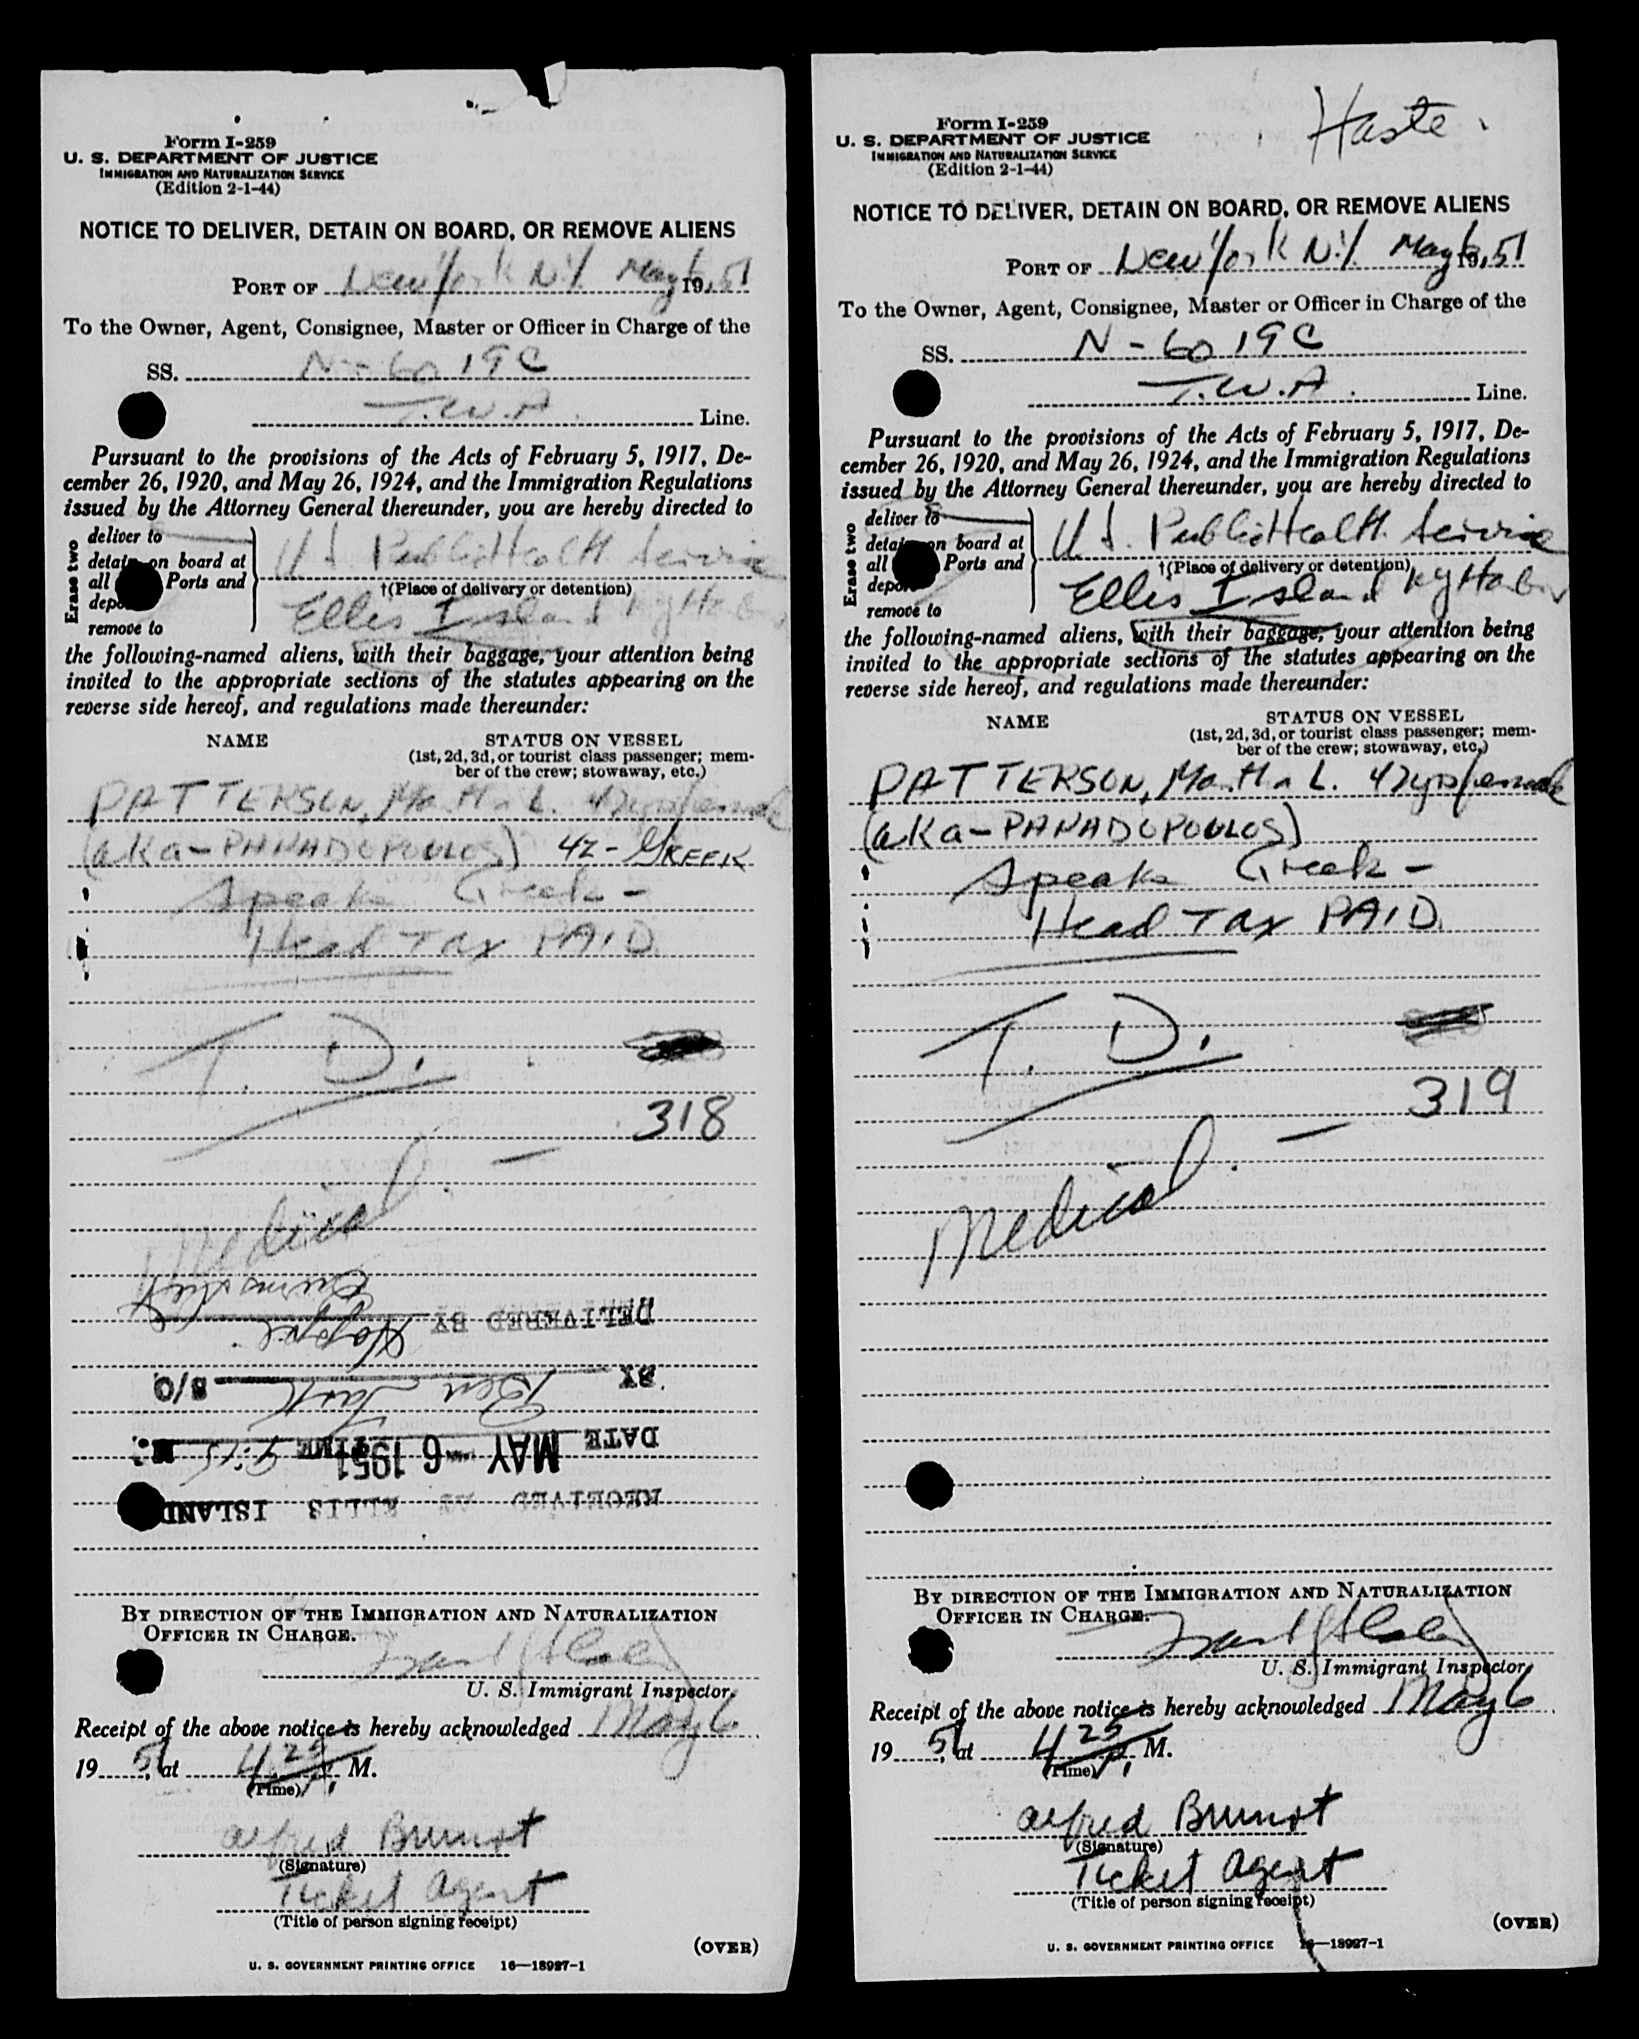 Form I-259
U. S. DEPARTMENT OF JUSTICE
IMMIGRATION AND NATURALIZATION SERVICE
(Edition 2-1-44)
NOTICE TO DELIVER, DETAIN ON BOARD, OR REMOVE ALIENS
PORT OF New York N.Y. May 6, 1951
To the Owner, Agent, Consignee, Master or Officer in Charge of the
SS. N-6019C
T.W.A. Line.
Pursuant to the provisions of the Acts of February 5, 1917, De-
cember 26, 1920, and May 26, 1924, and the Immigration Regulations
issued by the Attorney General thereunder, you are hereby directed to
Erase two
deliver to
detain on board at
all Ports and
remove to
U.S. Public Health Service
†(Place of delivery or detention)
Ellis Island NY Harbor
the following-named aliens, with their baggage, your attention being
invited to the appropriate sections of the statutes appearing on the
reverse side hereof, and regulations made thereunder:
NAME
STATUS ON VESSEL
(1st, 2d, 3d, or tourist class passenger; mem-
ber of the crew; stowaway, etc.)
PATTERSON, L. 42 yrs female
(aka - PANADOPOULOS) 42 - GREEK
Speaks Greek -
Head Tax PAID
T. D.
318
Medical. -
DELIVERED BY
BY Ben S/O
DATE MAY -6 1951 TIME 9:15 M.
RECEIVED AT ELLIS ISLAND
BY DIRECTION OF THE IMMIGRATION AND NATURALIZATION
OFFICER IN CHARGE.
U. S. Immigrant Inspector.
Receipt of the above notice is hereby acknowledged May 6
1951, at 4 25 P. M.
(Time)
Alfred
(Signature)
Ticket Agent
(Title of person signing receipt)
(OVER)
U. S. GOVERNMENT PRINTING OFFICE 16—18927-1
Haste.
Form I-259
U. S. DEPARTMENT OF JUSTICE
IMMIGRATION AND NATURALIZATION SERVICE
(Edition 2-1-44)
NOTICE TO DELIVER, DETAIN ON BOARD, OR REMOVE ALIENS
PORT OF New York N.Y. May 6, 1951
To the Owner, Agent, Consignee, Master or Officer in Charge of the
SS. N-6019C
T.W.A. Line.
Pursuant to the provisions of the Acts of February 5, 1917, De-
cember 26, 1920, and May 26, 1924, and the Immigration Regulations
issued by the Attorney General thereunder, you are hereby directed to
Erase two
deliver to
detain on board at
all Ports and
remove to
U.S. Public Health Service
†(Place of delivery or detention)
Ellis Island NY Harbor
the following-named aliens, with their baggage, your attention being
invited to the appropriate sections of the statutes appearing on the
reverse side hereof, and regulations made thereunder:
NAME
STATUS ON VESSEL
(1st, 2d, 3d, or tourist class passenger; mem-
ber of the crew; stowaway, etc.)
PATTERSON, L. 42 yrs female
(aka - PANADOPOULOS)
Speaks Greek -
Head Tax PAID
T. D.
319
Medical. -
BY DIRECTION OF THE IMMIGRATION AND NATURALIZATION
OFFICER IN CHARGE.
U. S. Immigrant Inspector.
Receipt of the above notice is hereby acknowledged May 6
1951, at 4 25 P. M.
(Time)
Alfred
(Signature)
Ticket Agent
(Title of person signing receipt)
(OVER)
U. S. GOVERNMENT PRINTING OFFICE 16—18927-1